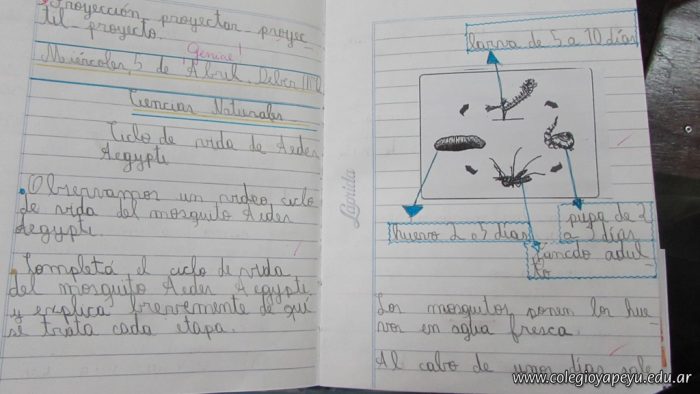 Proyección proyectar proyec-
til - proyecto.
Genial!
Miércoles, 5 de Abril. Deber Nº2
Ciencias Naturales
Ciclo de vida de Aedes
Aegypti
Observamos un video ciclo
de vida del mosquito Aedes
Aegypti.
Completá el ciclo de vida
del mosquito Aedes Aegypti
y explica brevemente de qué
se trata cada etapa.
Laprida
larva de 5 a 10 días
huevo 2 a 5 días
pupa de 2
a 3 días
adul-
to
Los mosquitos ponen los hue-
vos en agua fresca.
Al cabo de unos días sale
www.colegioyapeyu.edu.ar